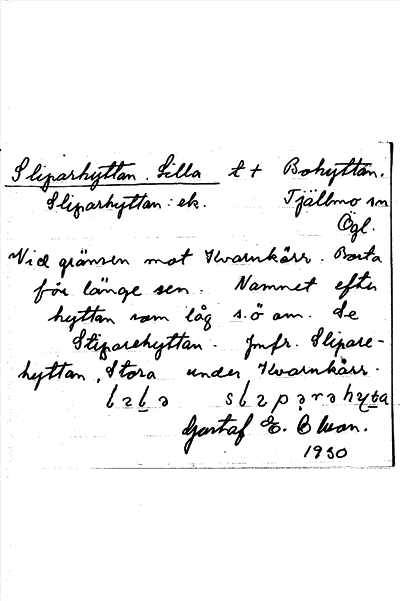 Sliparhyttan. Lilla t + Bohyttan.
Sliparhyttan: ek. Tjällmo sn
Ögl.
Vid gränsen mot Kvarnkärr. Borta
för länge sen. Namnet efter
hyttan som låg s.ö om. Se
Sliparehyttan. Jmfr. Slipare-
hyttan, Stora under Kvarnkärr.
Gustaf E.
1930